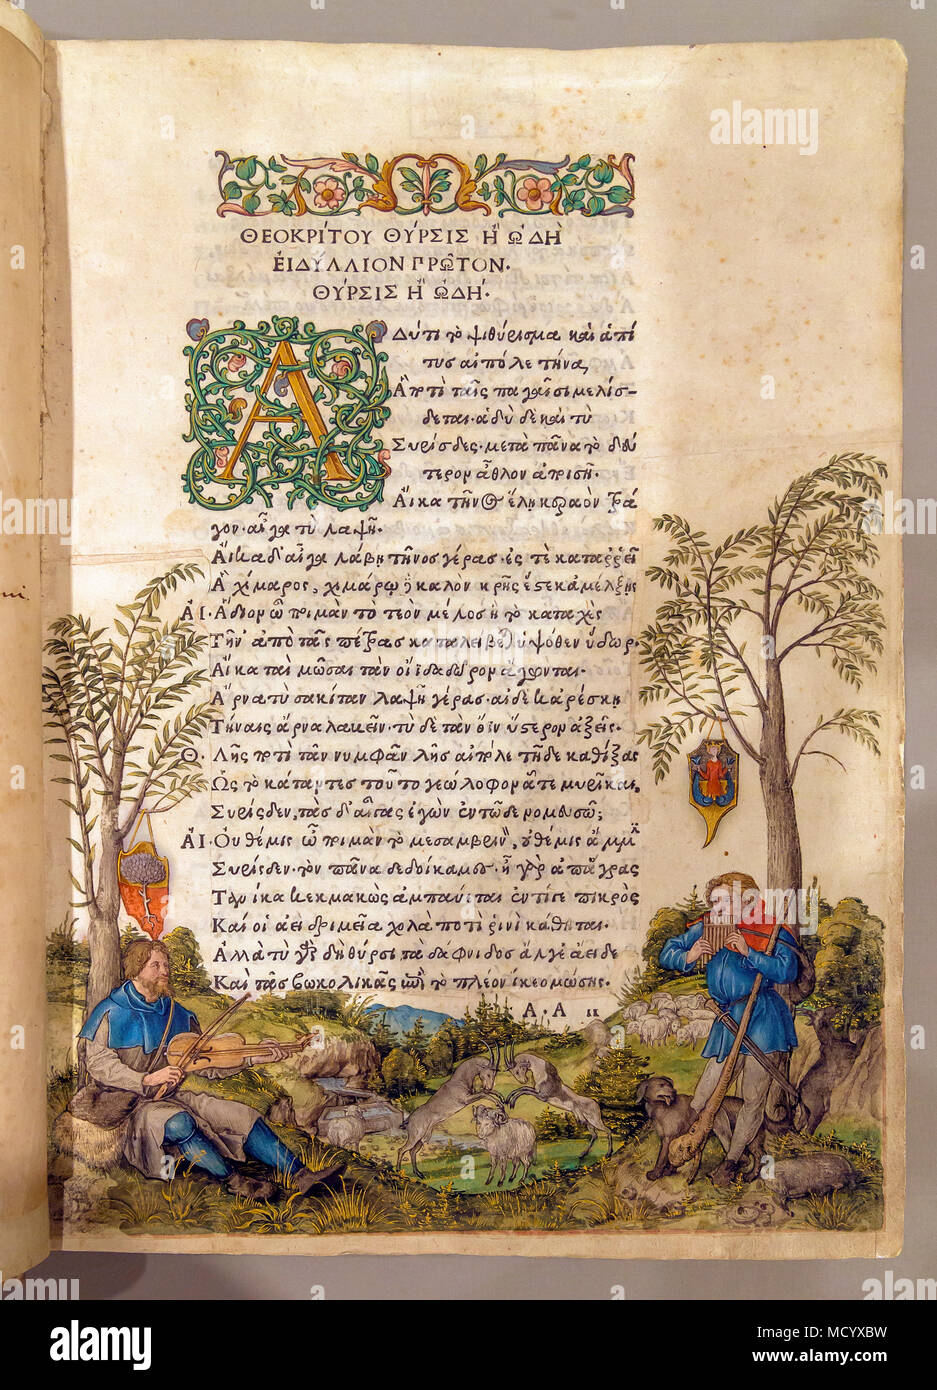 ΘΕΟΚΡΊΤΟΥ ΘΎΡΣΙΣ Ἢ ᾨΔῊ
ἘΙΔΎΛΛΙΟΝ ΠΡΩ͂ΤΟΝ·
ΘΎΡΣΙΣ Ἢ ᾨΔΉ·
ΑΔύ τι τὸ ψιθύρισμα καὶ ἁ πί
τυσ αἰπόλε τήνα,
Ἃ ποτὶ ταῖς παγαῖσι μελίσ-
δεται· ἁδὺ δὲ καὶ τὺ
Συρίσδες· μετὰ πᾶνα τὸ δεύ
τερον ἆθλον ἀποισῇ·
Αἴκα τῆνος ἕλῃ κεραὸν τρά
γον· αἶγα τὺ λαψῇ·
Αἴκα δ' αἶγα λάβῃ τῆνος γέρας· ἐς τὲ καταῤῥεῖ
Ἁ χίμαρος, χιμάρω καλὸν κρῆς ἔςε κ' ἀμέλξῃς
ΑΙ· Ἅδιον ὦ ποιμὰν τὸ τεὸν μέλος ἢ τὸ καταχὲς
Τῆν' ἀπὸ τᾶς πέτρας καταλείβεται ὑψόθεν ὕδωρ·
Αἴκα ταὶ μῶσαι τὰν οἴϊδα δῶρον ἄγωνται·
Ἄρνα τὺ σακίταν λαψῇ γέρας· αἰ δέ κ' ἀρέσκῃ
Τήναις ἄρνα λαβεῖν· τὺ δὲ τὰν ὄϊν ὕςερον ἀξεῖς·
Θ· Λῇς ποτὶ τᾶν νυμφᾶν λῇς αἰπόλε τῇδε καθίξας
Ὡς τὸ κάταντες τοῦτο γεώλοφον ᾇτε μυρῖκαι,
Συρίσδεν, τὰς δ' αἶγας ἐγὼν ἐν τῷδε νομευσῶ;
ΑΙ· Οὐ θέμις ὦ ποιμὰν τὸ μεσαμβρινὸν, οὐ θέμις ἄμμι
Συρίσδεν· τὸν πᾶνα δεδοίκαμες· ἦ γὰρ ἀπ' ἄγρας
Τανίκα κεκμακὼς ἀμπαύεται ἐντί γε πικρὸς
Καί οἱ ἀεὶ δριμεῖα χολὰ ποτὶ ῥινὶ κάθηται·
Ἀλλὰ τὺ γὰρ δὴ θύρσι τὰ δάφνιδος ἄλγε' ἄειδες
Καὶ τᾶς βωκολικᾶς ἐπὶ τὸ πλέον ἵκεο μώσης·
Α·Α ιι
alamy
Image ID: MCYXBW
www.alamy.com